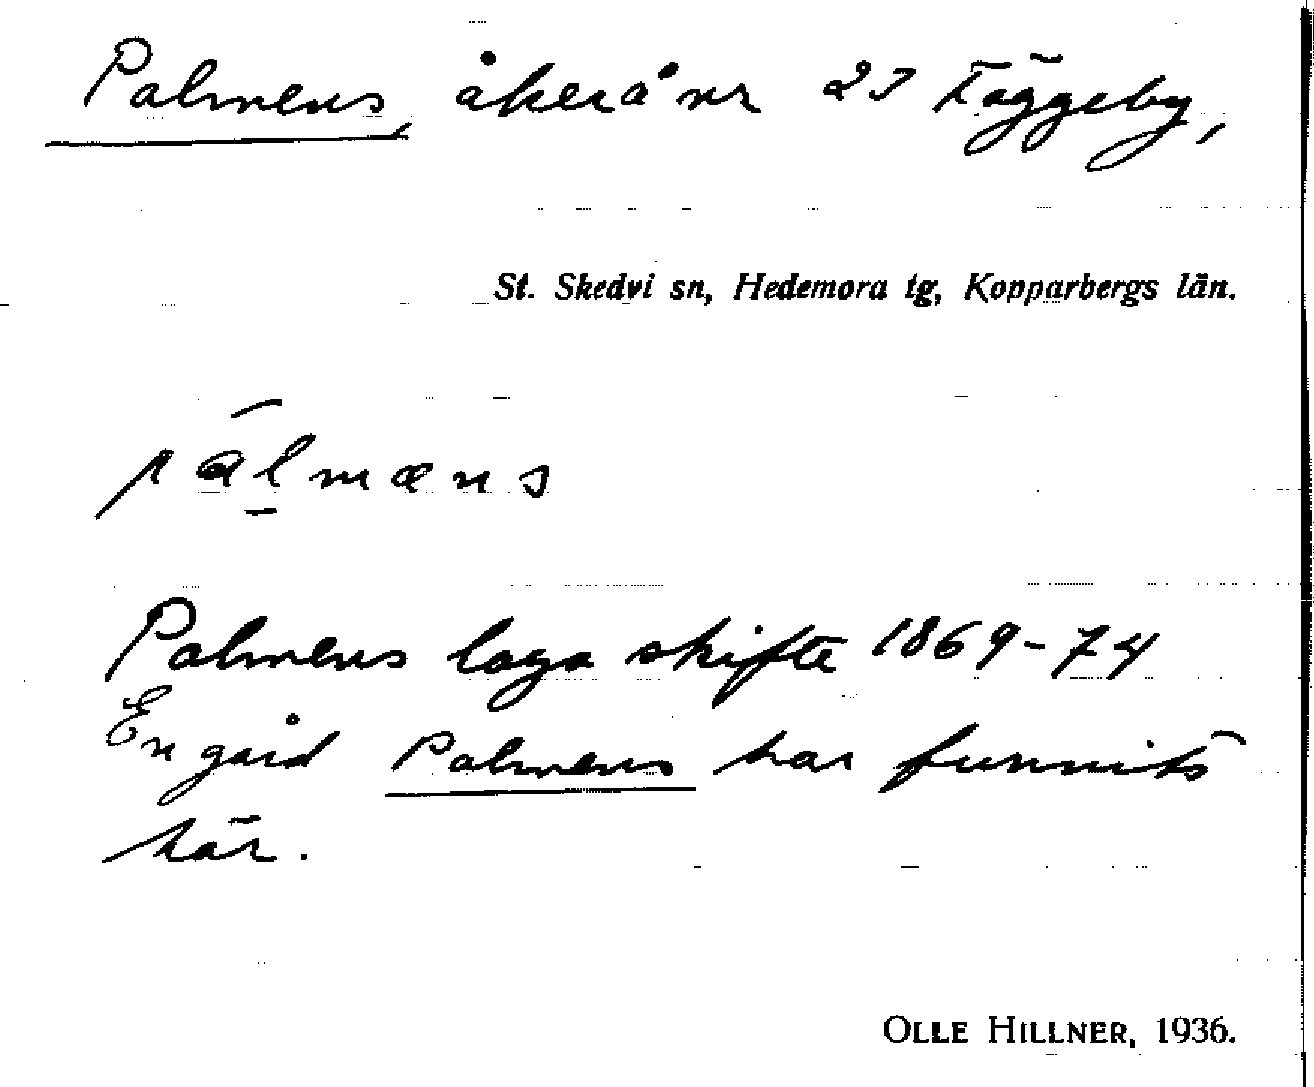 Palmens, åker å nr 23 Täggeby,
St. Skedvi sn, Hedemora tg, Kopparbergs län.
pālmæns
Palmens laga skifte 1869-74
En gård Palmens har funnits
här.
OLLE HILLNER, 1936.